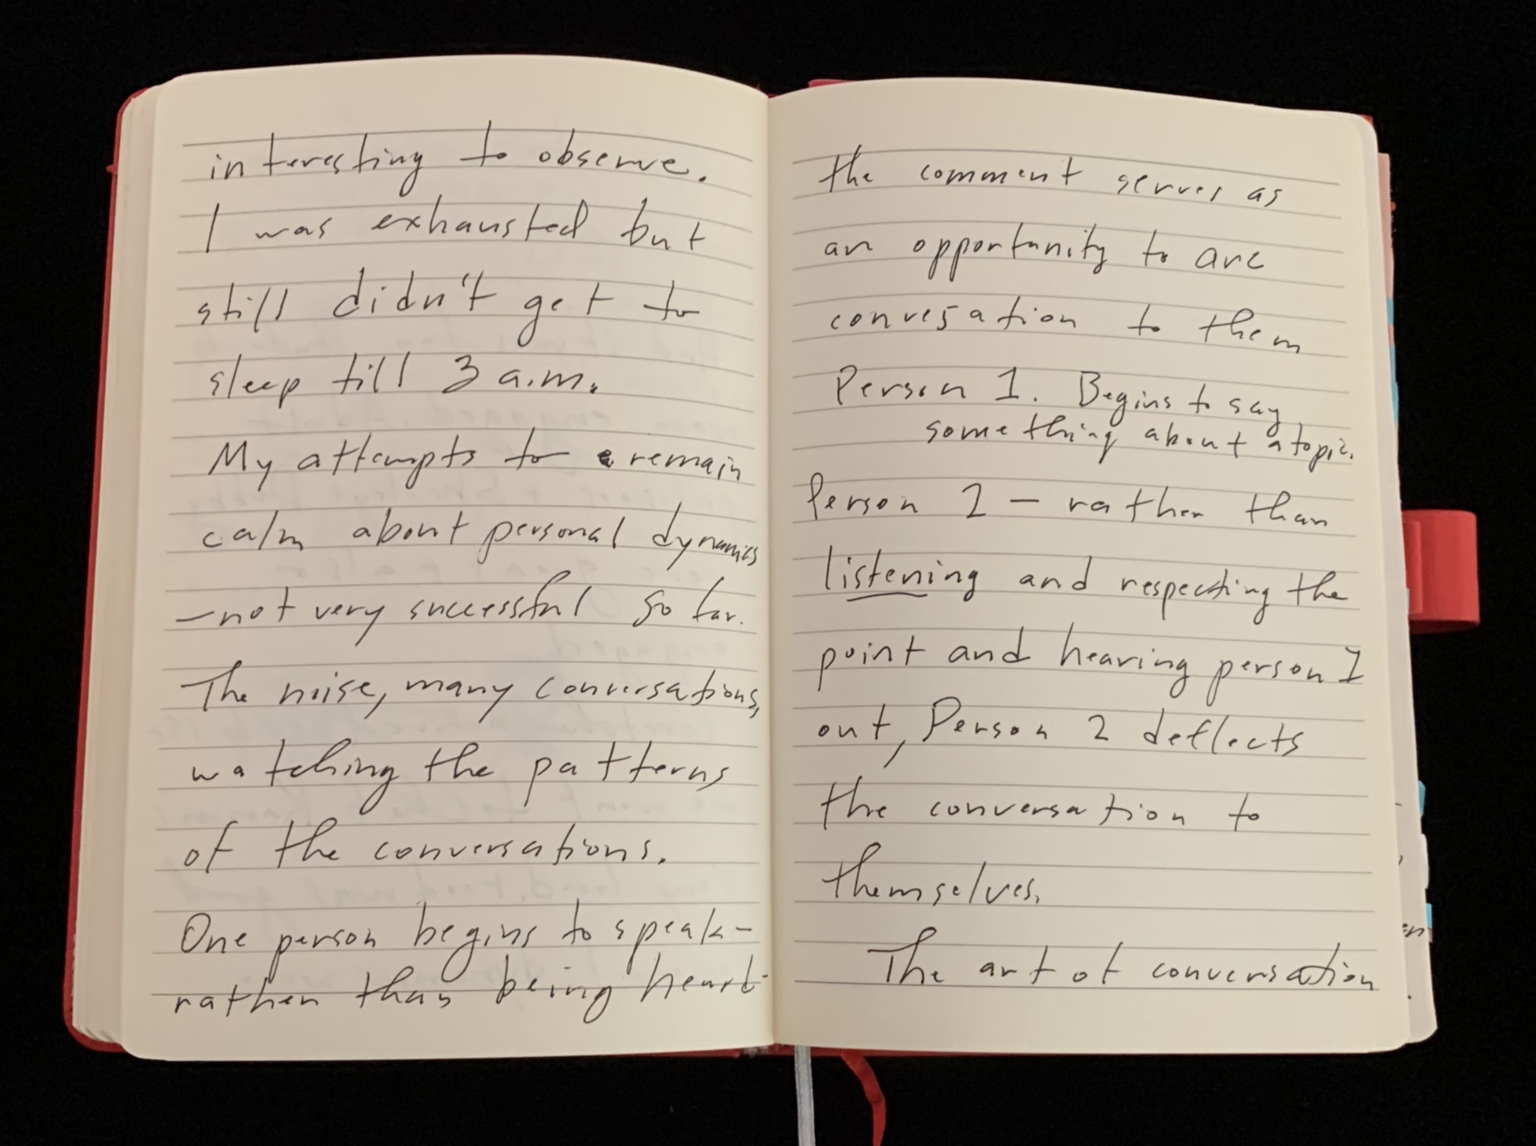 interesting to observe.
I was exhausted but
still didn't get to
sleep till 3 a.m.
My attempts to remain
calm about personal dynamics
—not very successful so far.
The noise, many conversations,
watching the patterns
of the conversations.
One person begins to speak–
rather than being heard
the comment serves as
an opportunity to arc
conversation to them
Person 1. Begins to say
something about a topic.
Person 2 — rather than
listening and respecting the
point and hearing person 1
out, Person 2 deflects
the conversation to
themselves.
The art of conversation